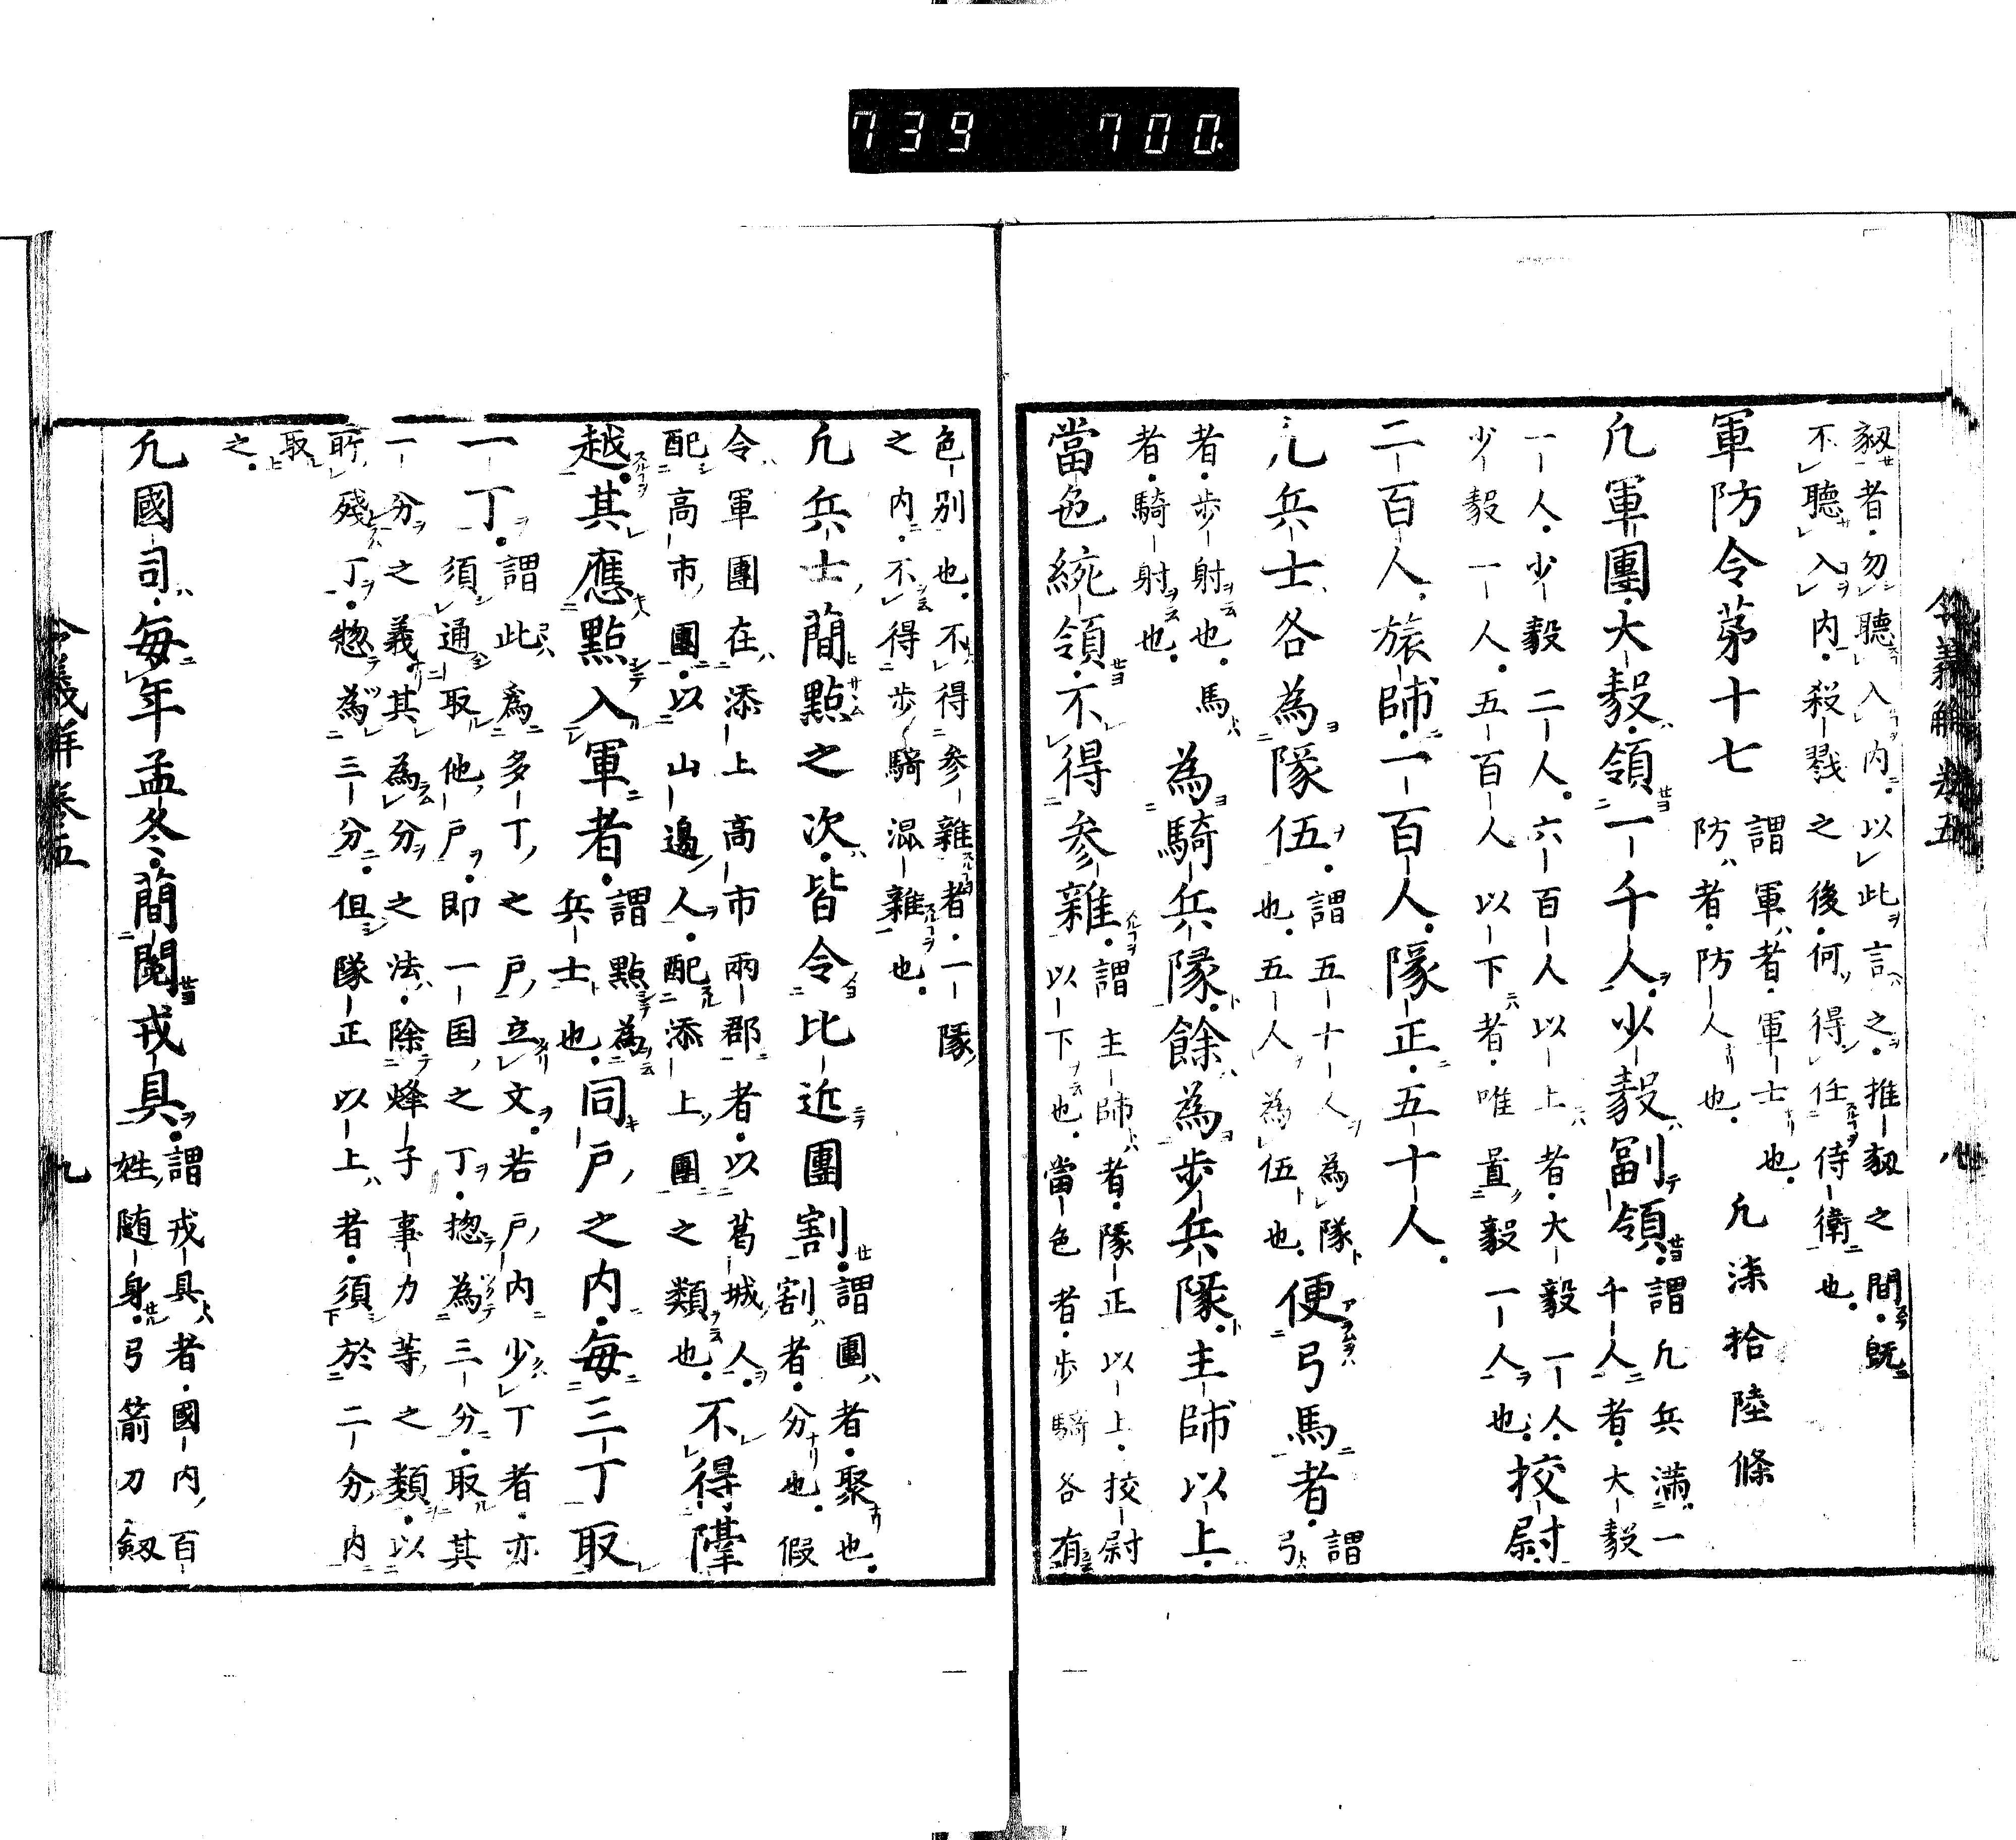 739 700.
令義解 卷五 八
劾者勿聽入内以此言之推劾之間既
不聽入内殺戮之後何得任侍衛也
軍防令苐十七 謂軍者軍士也
防者防人也 凢柒拾陸條
凢軍團大毅領一千人少毅副領 謂凢兵滿一
千人者大毅
一人少毅二人六百人以上者大毅一人
少毅一人五百人以下者唯置毅一人也 挍尉
二百人旅師一百人隊正五十人
凢兵士各為隊伍 謂五十人為隊
也五人為伍也 便弓馬者 謂
弓
者步射也馬
者騎射也 為騎兵隊餘為步兵隊主師以上
當色統領不得参雜 謂主師者隊正以上挍尉
以下也當色者步騎各有
色別也不得参雜者一隊
之内不得步騎混雜也
凢兵士蕳點之次皆令比近團割 謂團者聚也
割者分也假
令軍團在添上高市兩郡者以葛城人
配高市團以山邊人配添上團之類也 不得隔
越其應點入軍者 謂點為
兵士也 同戸之内每三丁取
一丁 謂此為多丁之戸立文若戸内少丁者亦
須通取他戸即一国之丁惣為三分取其
一分之義其為分之法除烽子事力等之類以
所殘丁惣為三分但隊正以上者須於二分内
取
之
凢國司每年孟冬蕳閲戎具 謂戎具者國内百
姓随身弓箭刀劔
令義解卷五 九